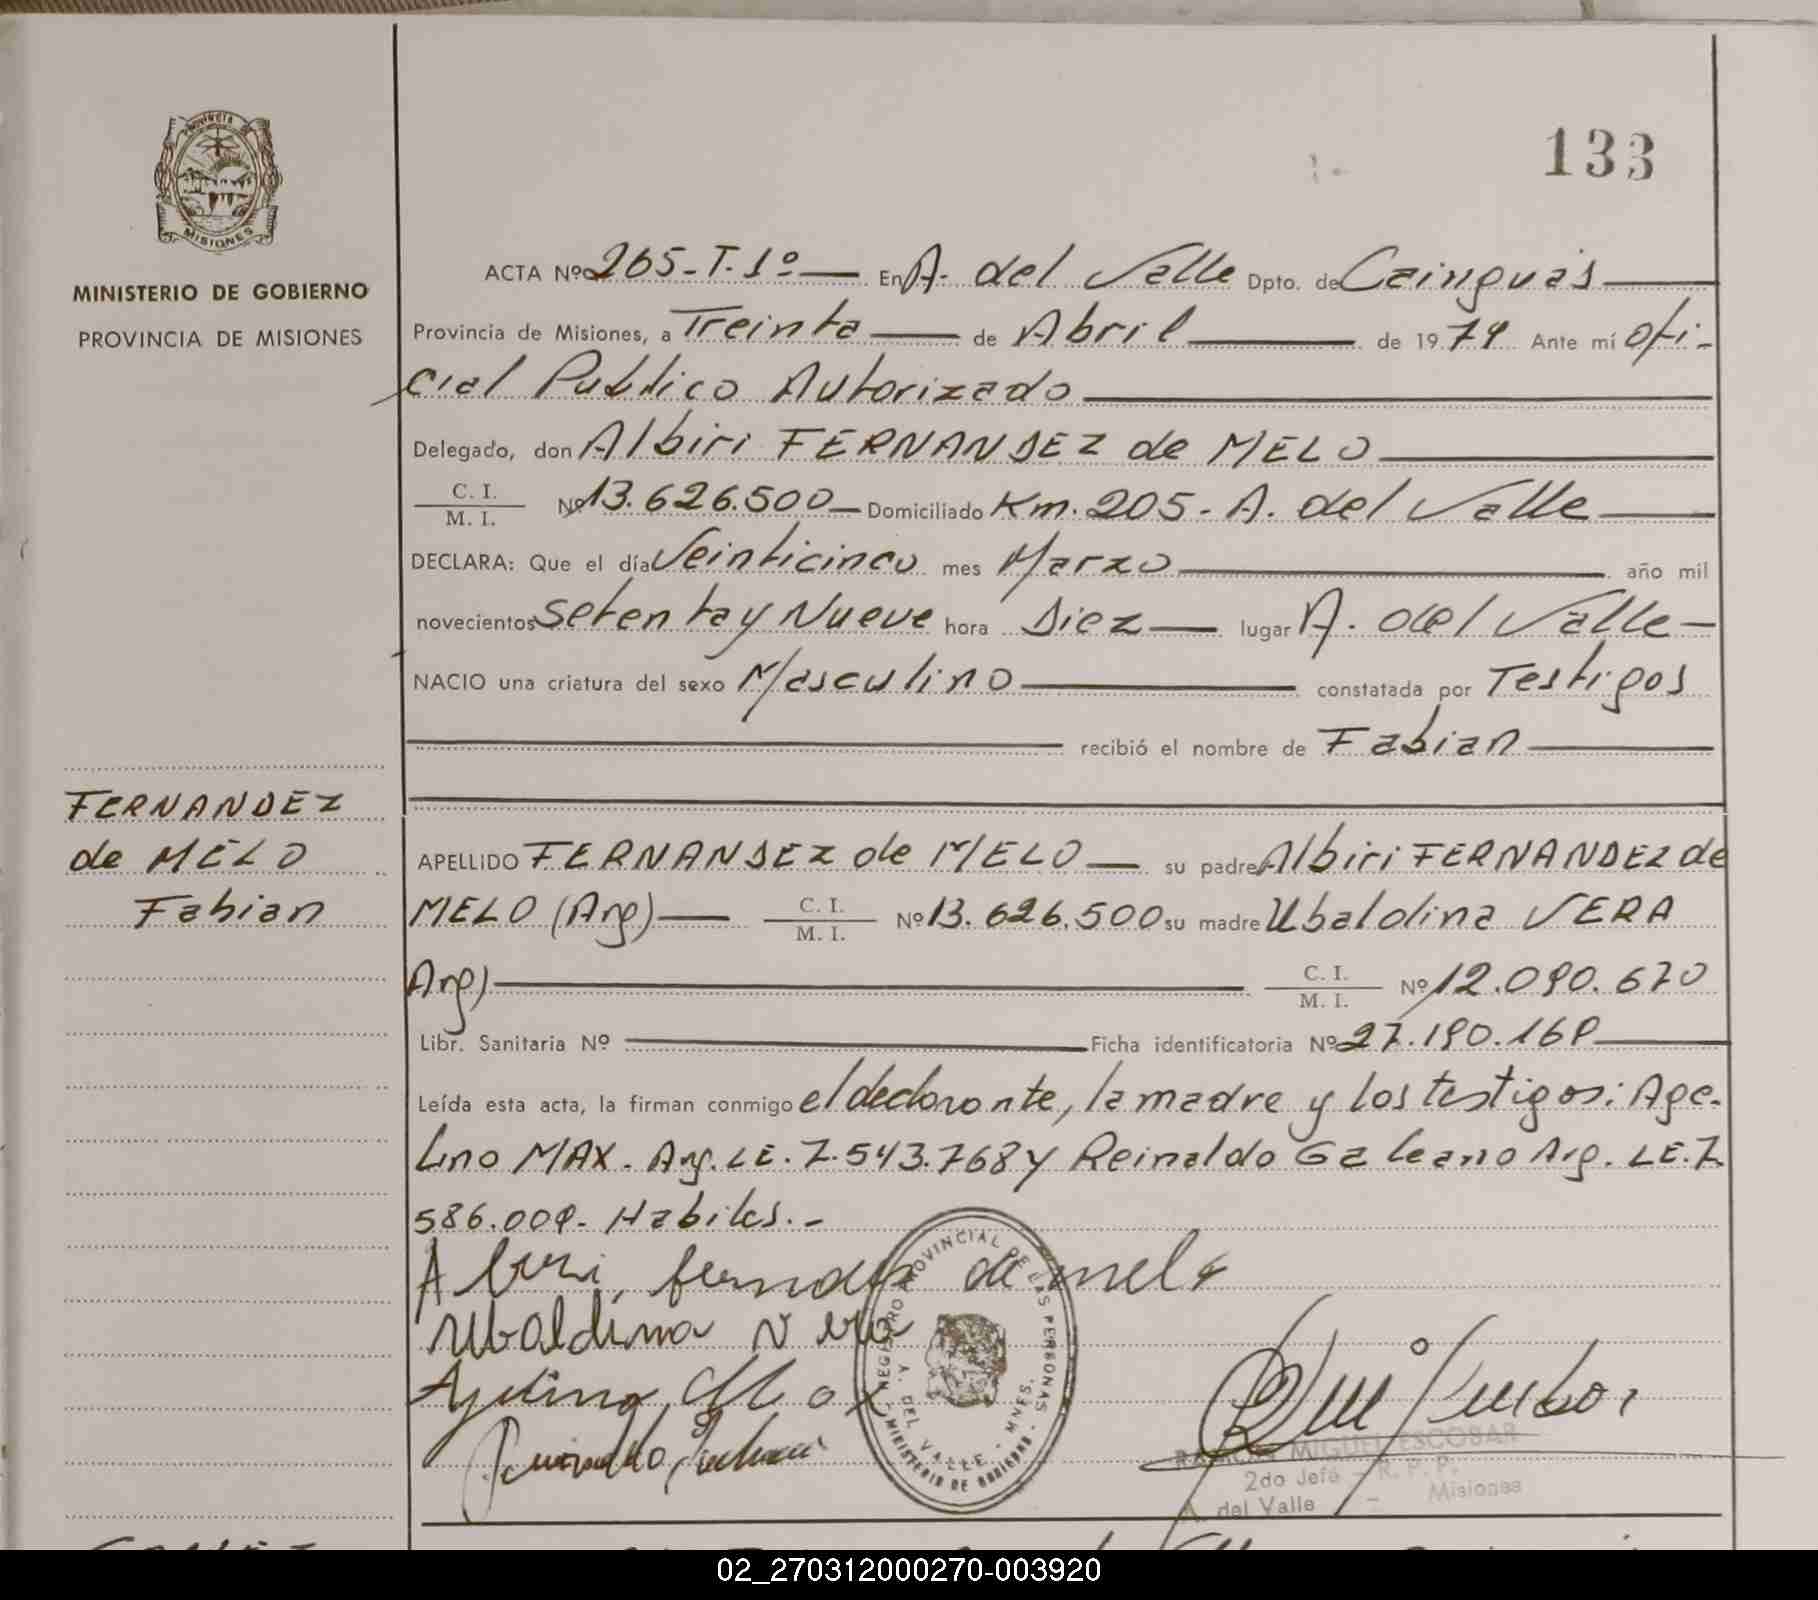 133
PROVINCIA DE
MISIONES
MINISTERIO DE GOBIERNO
PROVINCIA DE MISIONES
ACTA Nº 265-T.1º En A. del Valle Dpto. de Cainguás
Provincia de Misiones, a Treinta de Abril de 1979 Ante mí ofi-
cial Publico Autorizado
Delegado, don Albiri FERNANDEZ de MELO
C. I. / M. I. Nº 13.626.500 Domiciliado Km. 205 - A. del Valle
DECLARA: Que el día Veinticinco mes Marzo año mil
novecientos Setenta y Nueve hora Diez lugar A. del Valle
NACIO una criatura del sexo Masculino constatada por Testigos
recibió el nombre de Fabian
FERNANDEZ
de MELO
Fabian
APELLIDO FERNANDEZ de MELO su padre Albiri FERNANDEZ de
MELO (Arg) C. I. / M. I. Nº 13.626.500 su madre Ubaldina VERA
Arg) C. I. / M. I. Nº 12.090.670
Libr. Sanitaria Nº Ficha identificatoria Nº 27.190.169
Leída esta acta, la firman conmigo el declarante, la madre y los testigos: Age-
lino MAX. Arg. LE. 7.543.768 y Reinaldo Galeano Arg. LE. 7.
586.009. Habiles.-
Albiri fernandez de melo
Ubaldina vera
Ajelino Max
REGISTRO PROVINCIAL DE LAS PERSONAS
A. DEL VALLE - MNES.
MINISTERIO DE GOBIERNO
RAMON MIGUEL ESCOBAR
2do Jefe - R. P. P.
A. del Valle - Misiones
02_270312000270-003920